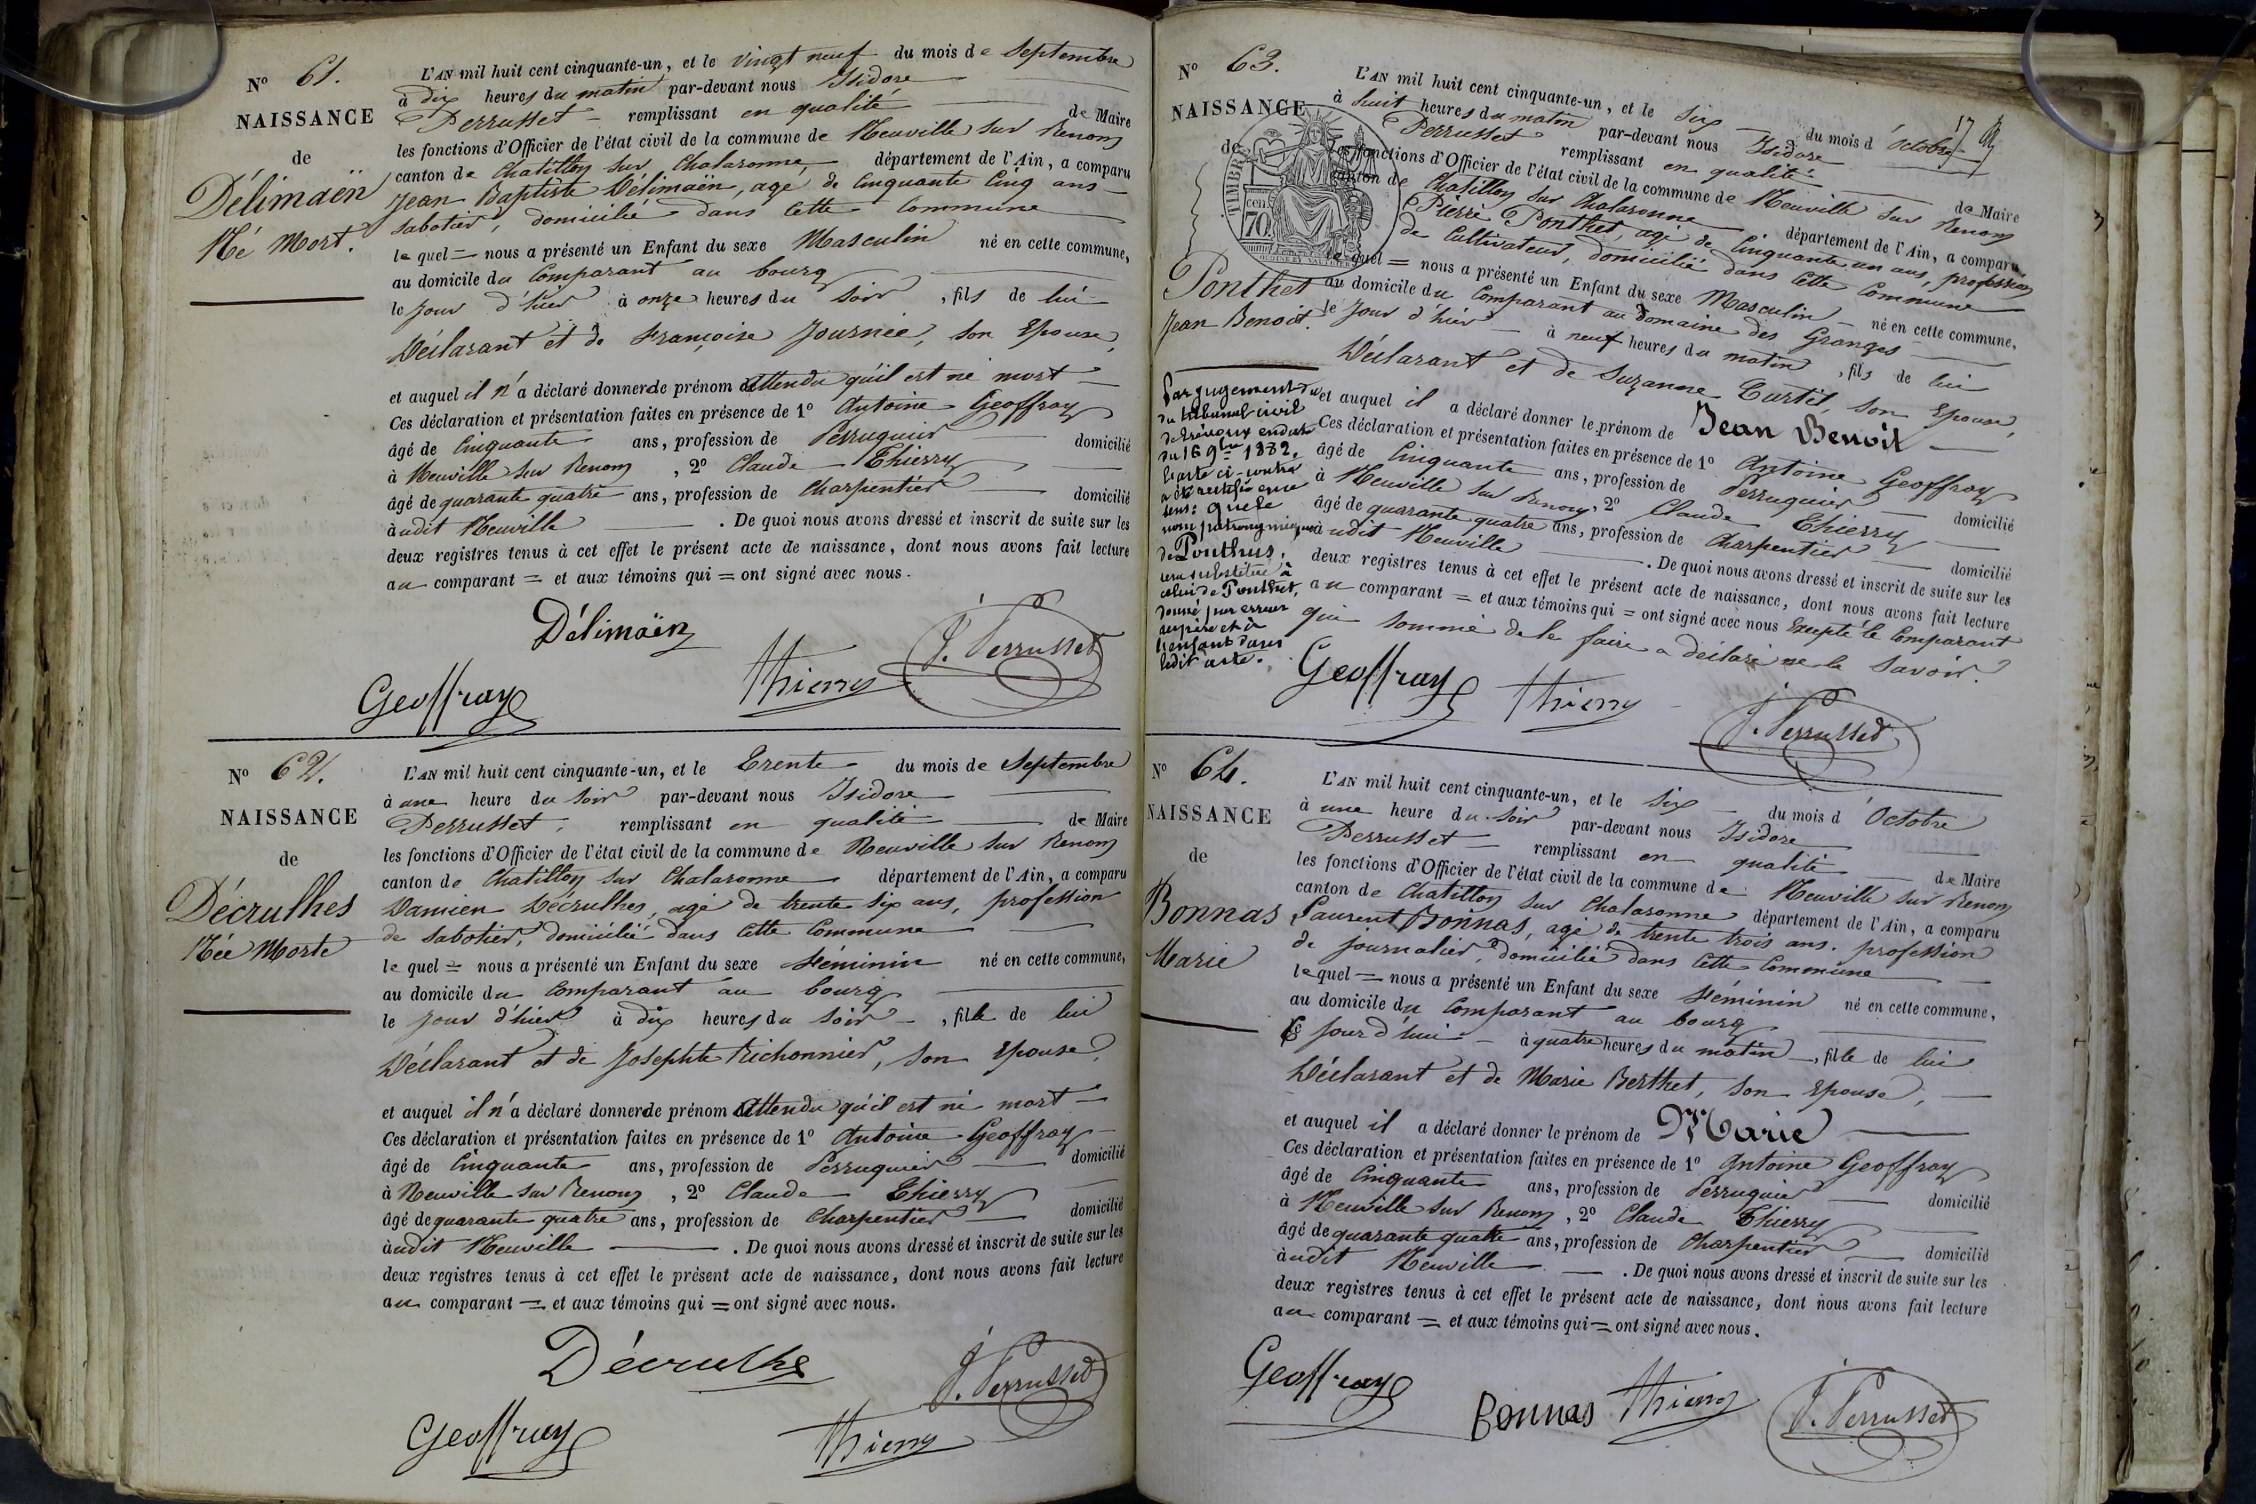 N° 61.
NAISSANCE
de
Délimaën
Né Mort.
L'AN mil huit cent cinquante-un, et le vingt neuf du mois de Septembre
à dix heures du matin par-devant nous Isidore
Perrusset remplissant en qualité de Maire
les fonctions d'Officier de l'état civil de la commune de Neuville sur Renom
canton de Chatillon sur Chalaronne, département de l'Ain, a comparu
Jean Baptiste Délimaën, agé de Cinquante Cinq ans
Sabotier, domicilié dans Cette Commune
lequel = nous a présenté un Enfant du sexe Masculin né en cette commune,
au domicile du Comparant au bourg
le jour d'hier à onze heures du Soir, fils de lui
Déclarant et de Françoise Journée, son Epouse,
et auquel il n'a déclaré donner de prénom attendu qu'il est né mort
Ces déclaration et présentation faites en présence de 1° Antoine Geoffray
âgé de Cinquante ans, profession de Perruquier domicilié
à Neuville sur Renom, 2° Claude Thierry
âgé de quarante quatre ans, profession de Charpentier domicilié
àudit Neuville. De quoi nous avons dressé et inscrit de suite sur les
deux registres tenus à cet effet le présent acte de naissance, dont nous avons fait lecture
au comparant = et aux témoins qui = ont signé avec nous.
Délimaën
Geoffray Thierry J. Perrusset
N° 62.
NAISSANCE
de
Décrulhes
Née Morte
L'AN mil huit cent cinquante-un, et le Trente du mois de Septembre
à une heure du Soir par-devant nous Isidore
Perrusset, remplissant en qualité de Maire
les fonctions d'Officier de l'état civil de la commune de Neuville sur Renom
canton de Chatillon sur Chalaronne département de l'Ain, a comparu
Damien Décrulhes, agé de trente six ans, profession
de Sabotier, domicilié dans Cette Commune
lequel = nous a présenté un Enfant du sexe Féminin né en cette commune,
au domicile du Comparant au bourg
le jour d'hier à dix heures du Soir, fille de lui
Déclarant et de Josephte Richonnier, son Epouse,
et auquel il n'a déclaré donner de prénom attendu qu'il est né mort
Ces déclaration et présentation faites en présence de 1° Antoine Geoffray
âgé de Cinquante ans, profession de Perruquier domicilié
à Neuville sur Renom, 2° Claude Thierry
âgé de quarante quatre ans, profession de Charpentier domicilié
àudit Neuville. De quoi nous avons dressé et inscrit de suite sur les
deux registres tenus à cet effet le présent acte de naissance, dont nous avons fait lecture
au comparant = et aux témoins qui = ont signé avec nous.
Décrulhe
J. Perrusset
Geoffray Thierry
17
N° 63.
NAISSANCE
de
TIMBRE
70
Ponthet
Jean Benoit.
Par jugement
du tribunal civil
de Trévoux en date
du 16 9bre 1882,
l'acte ci-contre
a été rectifié en ce
sens: que le
nom patronymique
de Ponthus,
sera substitué à
celui de Ponthet,
donné par erreur
au père et à
l'enfant dans
ledit acte.
L'AN mil huit cent cinquante-un, et le Six du mois d'Octobre
à huit heures du matin par-devant nous Isidore
Perrusset remplissant en qualité de Maire
les fonctions d'Officier de l'état civil de la commune de Neuville sur Renom
canton de Chatillon sur Chalaronne département de l'Ain, a comparu
Pierre Ponthet, agé de Cinquante un ans, profession
de Cultivateur, domicilié dans Cette Commune
lequel = nous a présenté un Enfant du sexe Masculin né en cette commune,
au domicile du Comparant au domaine des Granges
le Jour d'hier à neuf heures du matin, fils de lui
Déclarant et de Suzanne Curtil, son Epouse,
et auquel il a déclaré donner le prénom de Jean Benoit
Ces déclaration et présentation faites en présence de 1° Antoine Geoffray
âgé de Cinquante ans, profession de Perruquier domicilié
à Neuville sur Renom, 2° Claude Thierry
âgé de quarante quatre ans, profession de Charpentier domicilié
àudit Neuville. De quoi nous avons dressé et inscrit de suite sur les
deux registres tenus à cet effet le présent acte de naissance, dont nous avons fait lecture
au comparant = et aux témoins qui = ont signé avec nous Excepté le Comparant
qui sommé de le faire a déclaré ne le Savoir.
Geoffray Thierry J. Perrusset
N° 64.
NAISSANCE
de
Bonnas
Marie
L'AN mil huit cent cinquante-un, et le Six du mois d'Octobre
à une heure du Soir par-devant nous Isidore
Perrusset remplissant en qualité de Maire
les fonctions d'Officier de l'état civil de la commune de Neuville sur Renom
canton de Chatillon sur Chalaronne département de l'Ain, a comparu
Laurent Bonnas, agé de trente trois ans, profession
de journalier, domicilié dans Cette Commune
lequel = nous a présenté un Enfant du sexe Féminin né en cette commune,
au domicile du Comparant au bourg
Ce Jour d'hui à quatre heures du matin, fille de lui
Déclarant et de Marie Berthet, son Epouse,
et auquel il a déclaré donner le prénom de Marie
Ces déclaration et présentation faites en présence de 1° Antoine Geoffray
âgé de Cinquante ans, profession de Perruquier domicilié
à Neuville sur Renom, 2° Claude Thierry
âgé de quarante quatre ans, profession de Charpentier domicilié
àudit Neuville. De quoi nous avons dressé et inscrit de suite sur les
deux registres tenus à cet effet le présent acte de naissance, dont nous avons fait lecture
au comparant = et aux témoins qui = ont signé avec nous.
Geoffray Bonnas Thierry J. Perrusset